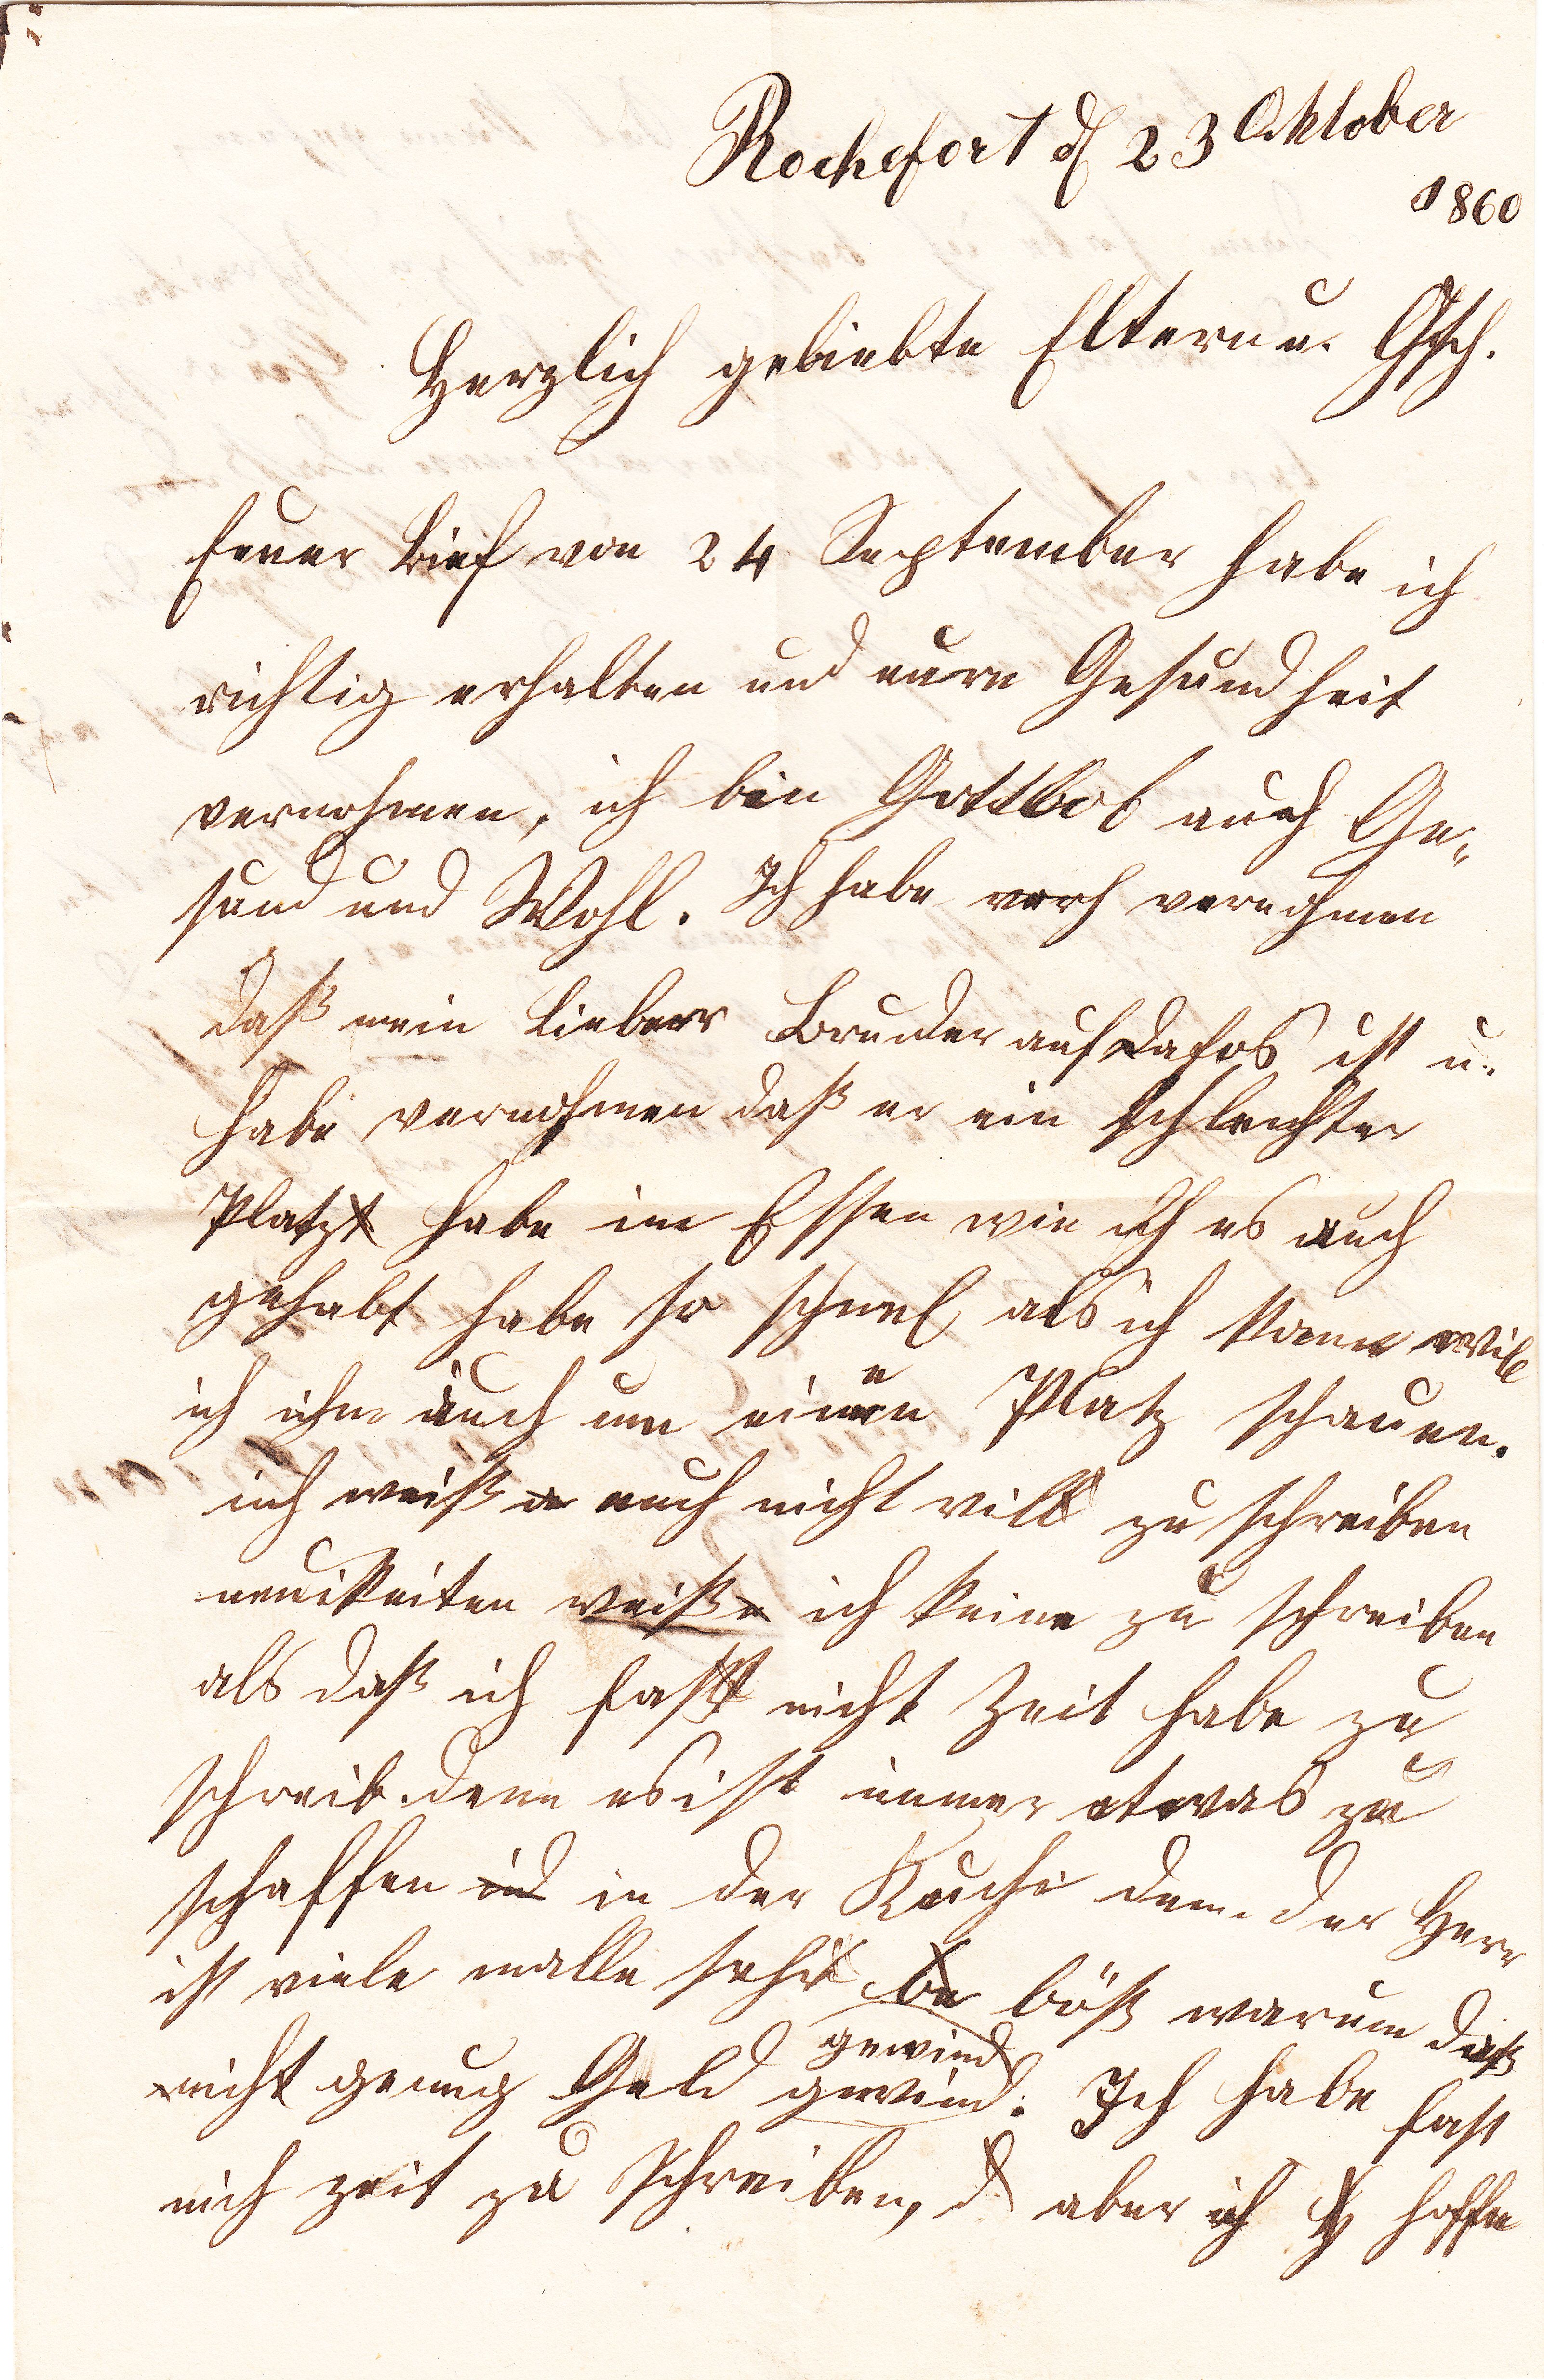 Rochefort d 23 Oktober
1860
Herzlich geliebte Eltern u. Gsch.
Euer Brief von 24 September habe ich
richtig erhalten und eure Gesundheit
vernohmen, ich bin Gottlob auch Ge-
sund und Wohl. Ich habe vernohmen
daß mein lieber Bruder auf Dafos ist u.
habe vernohmen daß er ein schlechter
Platz habe im Essen wie ich es auch
gehabt habe so schnel als ich kann will
ich ihm auch um einen Platz schauen.
ich weiß auch nicht vill zu schreiben
neuikeiten weiß ich keine zu schreiben
als daß ich fast nicht Zeit habe zu
schreib. denn es ist immer etwas zu
schaffen in der Kuche den der Herr
ist viele malle sehr böß warum daß
nicht genug Geld gewind. Ich habe fast
nich zeit zu schreiben, aber ich hoffe